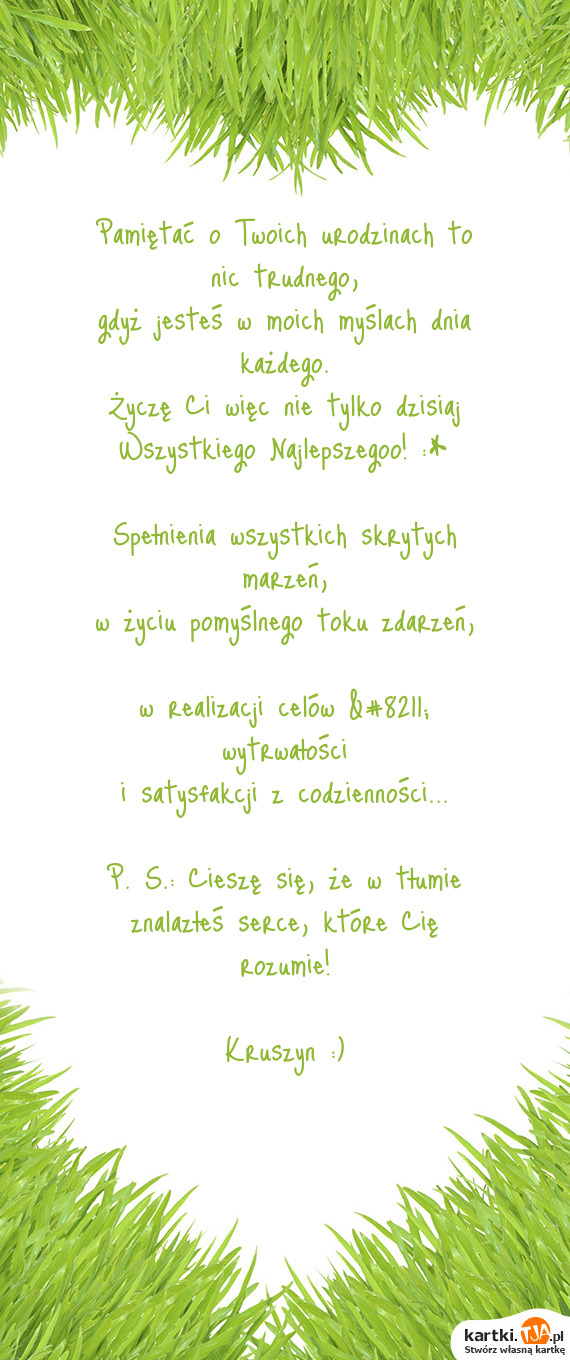 Pamiętać o Twoich urodzinach to
nic trudnego,
gdyż jesteś w moich myślach dnia
każdego.
Życzę Ci więc nie tylko dzisiaj
Wszystkiego Najlepszegoo! :*
Spełnienia wszystkich skrytych
marzeń,
w życiu pomyślnego toku zdarzeń,
w realizacji celów &#8211;
wytrwałości
i satysfakcji z codzienności...
P. S.: Cieszę się, że w tłumie
znalazłeś serce, które Cię
rozumie!
Kruszyn :)
kartki.TJA.pl
Stwórz własną kartkę